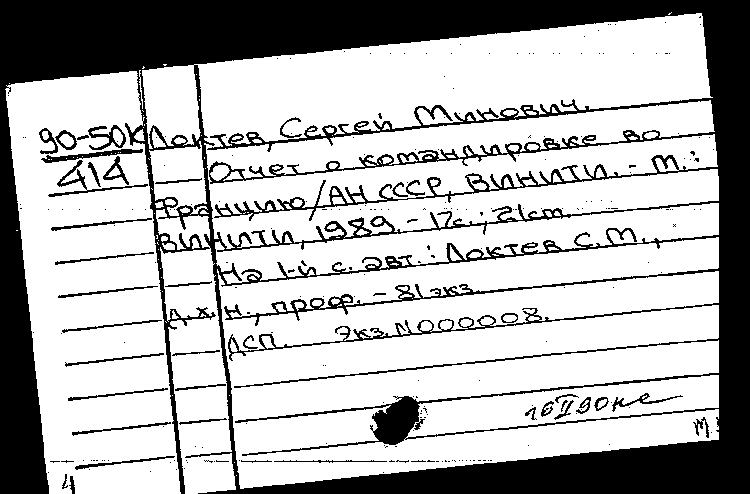 90-50К Локтев, Сергей Минович.
414 Отчет о командировке во
Францию/АН СССР, ВИНИТИ. - М.:
ВИНИТИ, 1989. - 17с.; 21см.
На 1-й с. авт.: Локтев С.М.,
д.х.н., проф. - 81 экз.
ДСП. Экз. N000008.
16 II 90
М
4